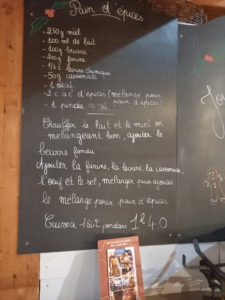 Pain d'épices
- 250g miel
- 100 ml de lait
- 100g beurre
- 200g farine
- 1/2 s levure chimique
- 50g cassonade
- 1 oeuf
- 2 c à c d'épices (mélange pour pain d'épices)
- 1 pincée de sel
Chauffer le lait et le miel en
mélangeant bien, ajouter le
beurre fondu
Ajouter la farine, la levure, la cassonade,
l'oeuf et le sel, mélanger puis ajouter
le mélange pour pain d'épices.
pendant 1h40
Jo